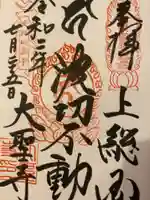 奉拝
上総国
波切不動
大聖寺
令和二年
七月二五日